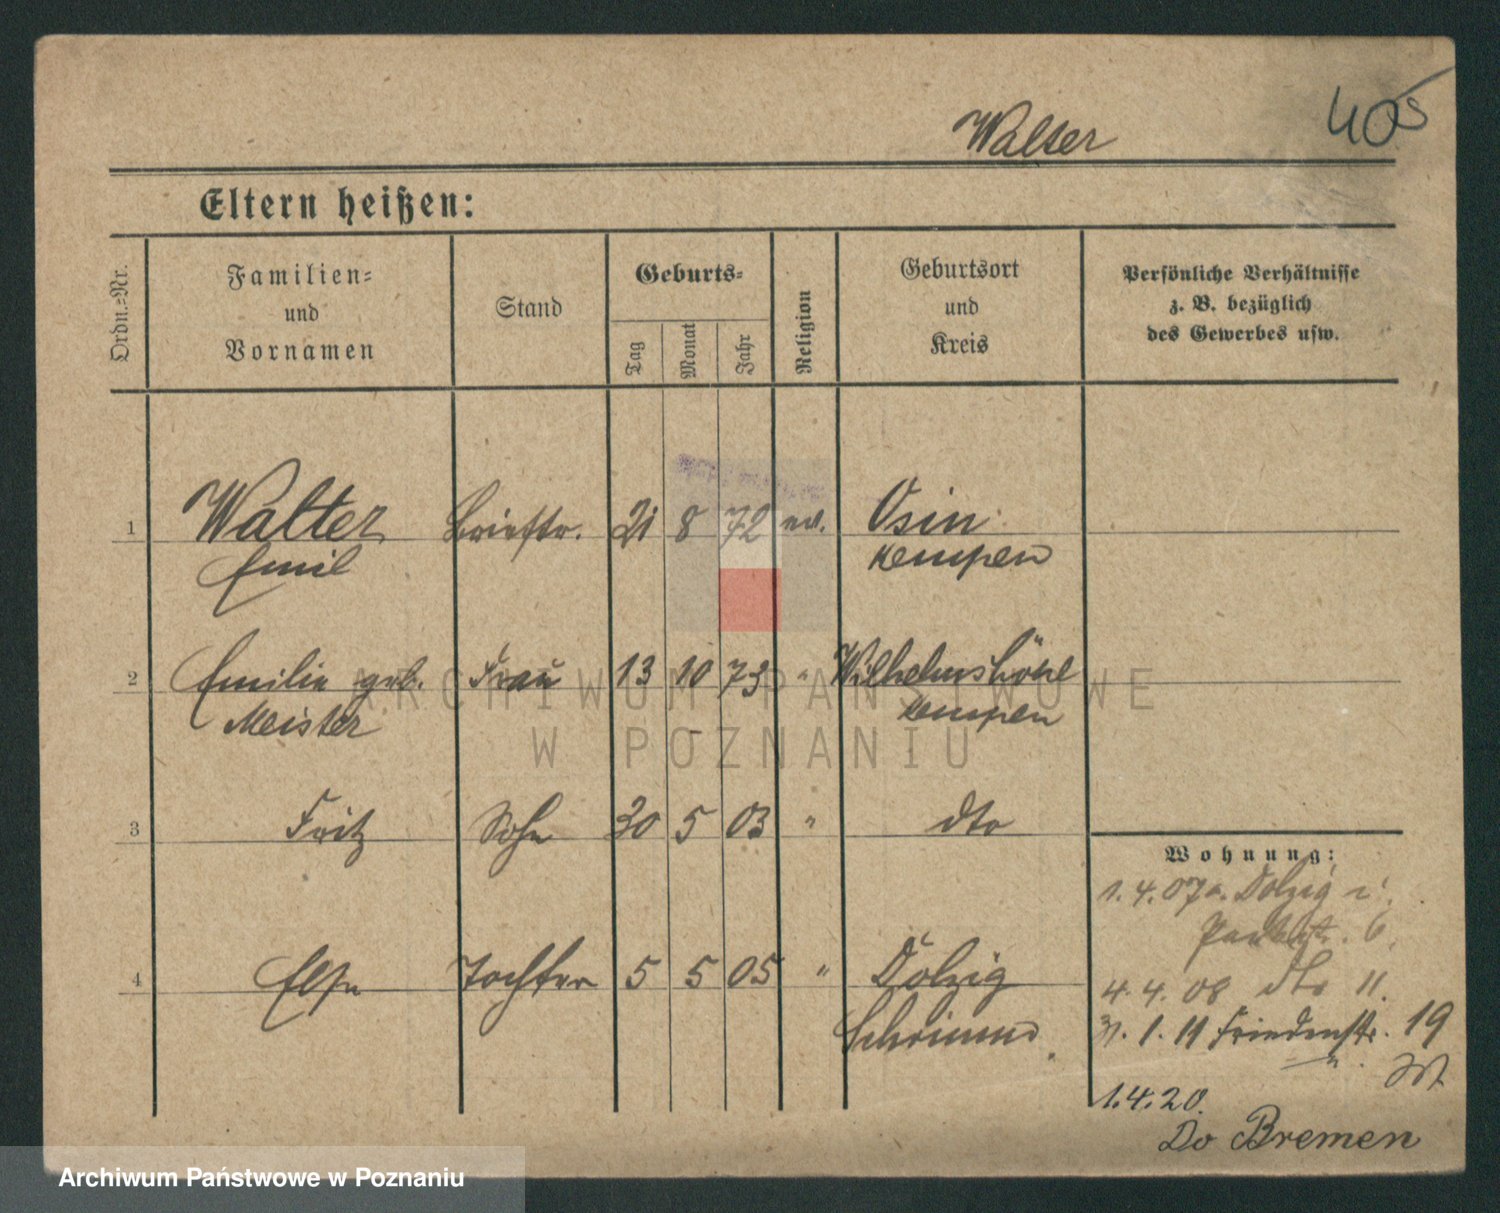 405
Walter
Eltern heißen:
Ordn.-Nr.
Familien-
und
Vornamen
Stand
Geburts-
Tag
Monat
Jahr
Religion
Geburtsort
und
Kreis
Persönliche Verhältnisse
z. B. bezüglich
des Gewerbes usw.
1 Walter Brieftr. 21 8 72 ev. Osin
Emil Kempen
2 Emilie geb. Frau 13 10 73 " Wilhelmshöhe
Meister Kempen
3 Fritz Sohn 30 5 03 " dto
Wohnung:
1.4.07 a. Dolzig
6.
4 Else Tochter 5 5 05 " Dolzig
Schrimm.
4.4.08 dto 11.
31.1.11 Friedenstr. 19
1.4.20.
Do Bremen
ARCHIWUM PAŃSTWOWE
W POZNANIU
Archiwum Państwowe w Poznaniu